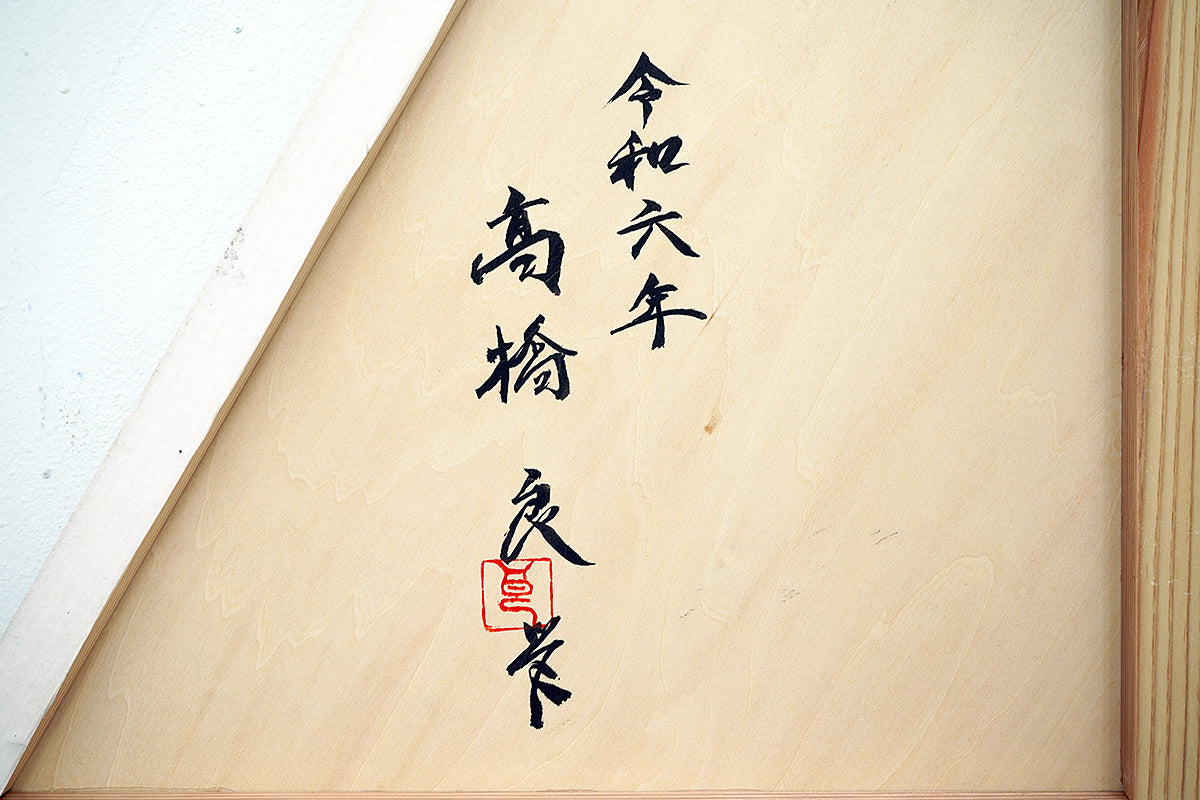 令和六年
高橋良笔